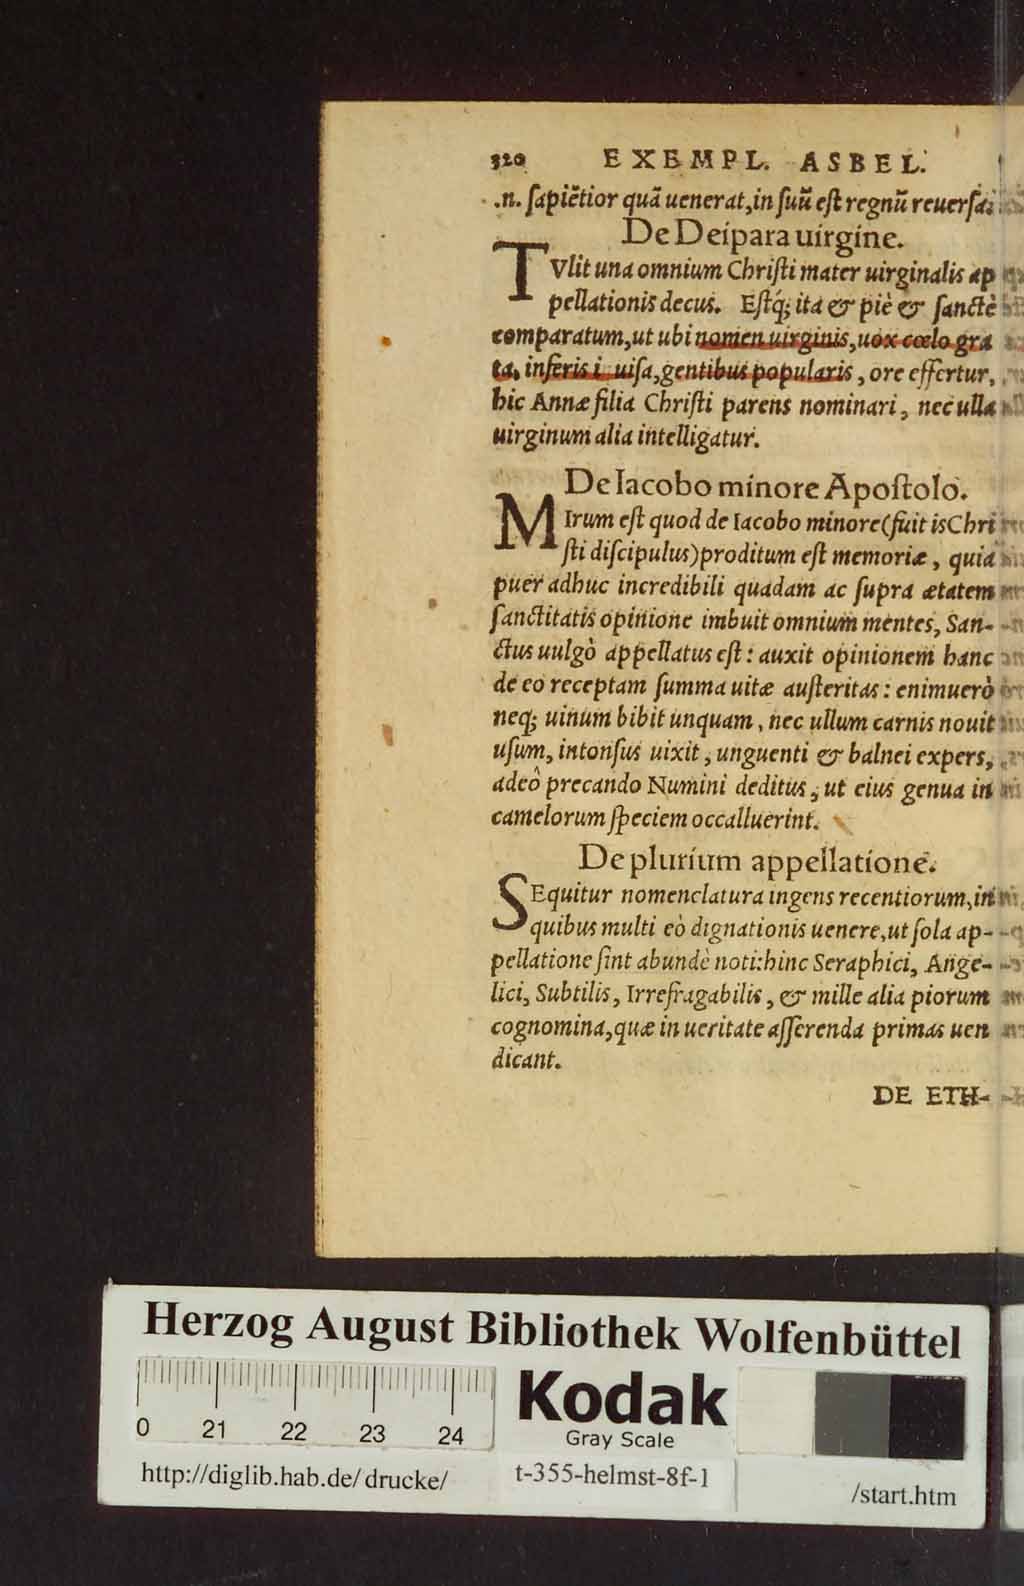 320 EXEMPL. ASBEL.
.n. ſapiẽtior quã uenerat, in ſuũ eſt regnũ reuerſa.
De Deipara uirgine.
TVlit una omnium Chriſti mater uirginalis ap
pellationis decus. Eſtq́; ita & piè & ſanctè
comparatum, ut ubi nomen uirginis, uox cœlo gra
ta, inferis i uiſa, gentibus popularis, ore effertur,
hic Annæ filia Chriſti parens nominari, nec ulla
uirginum alia intelligatur.
De Iacobo minore Apoſtolo.
MIrum eſt quod de Iacobo minore (fuit is Chri
ſti diſcipulus) proditum eſt memoriæ, quia
puer adhuc incredibili quadam ac ſupra ætatem
ſanctitatis opinione imbuit omnium mentes, San-
ctus uulgò appellatus eſt: auxit opinionem hanc
de eo receptam ſumma uitæ auſteritas: enimuerò
neq; uinum bibit unquam, nec ullum carnis nouit
uſum, intonſus uixit, unguenti & balnei expers,
adeò precando Numini deditus, ut eius genua in
camelorum ſpeciem occalluerint.
De plurium appellatione.
SEquitur nomenclatura ingens recentiorum, in
quibus multi eò dignationis uenere, ut ſola ap-
pellatione ſint abundè noti: hinc Seraphici, Ange-
lici, Subtilis, Irrefragabilis, & mille alia piorum
cognomina, quæ in ueritate aſſerenda primas uen
dicant.
DE ETH-
Herzog August Bibliothek Wolfenbüttel
0 21 22 23 24
Kodak
Gray Scale
http://diglib.hab.de/drucke/ t-355-helmst-8f-1 /start.htm